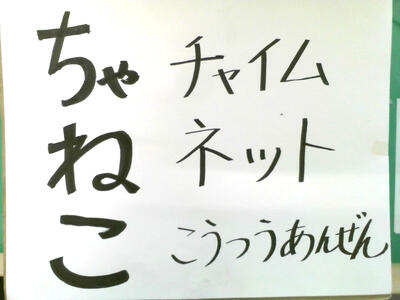 ちゃ チャイム
ね ネット
こ こうつうあんぜん